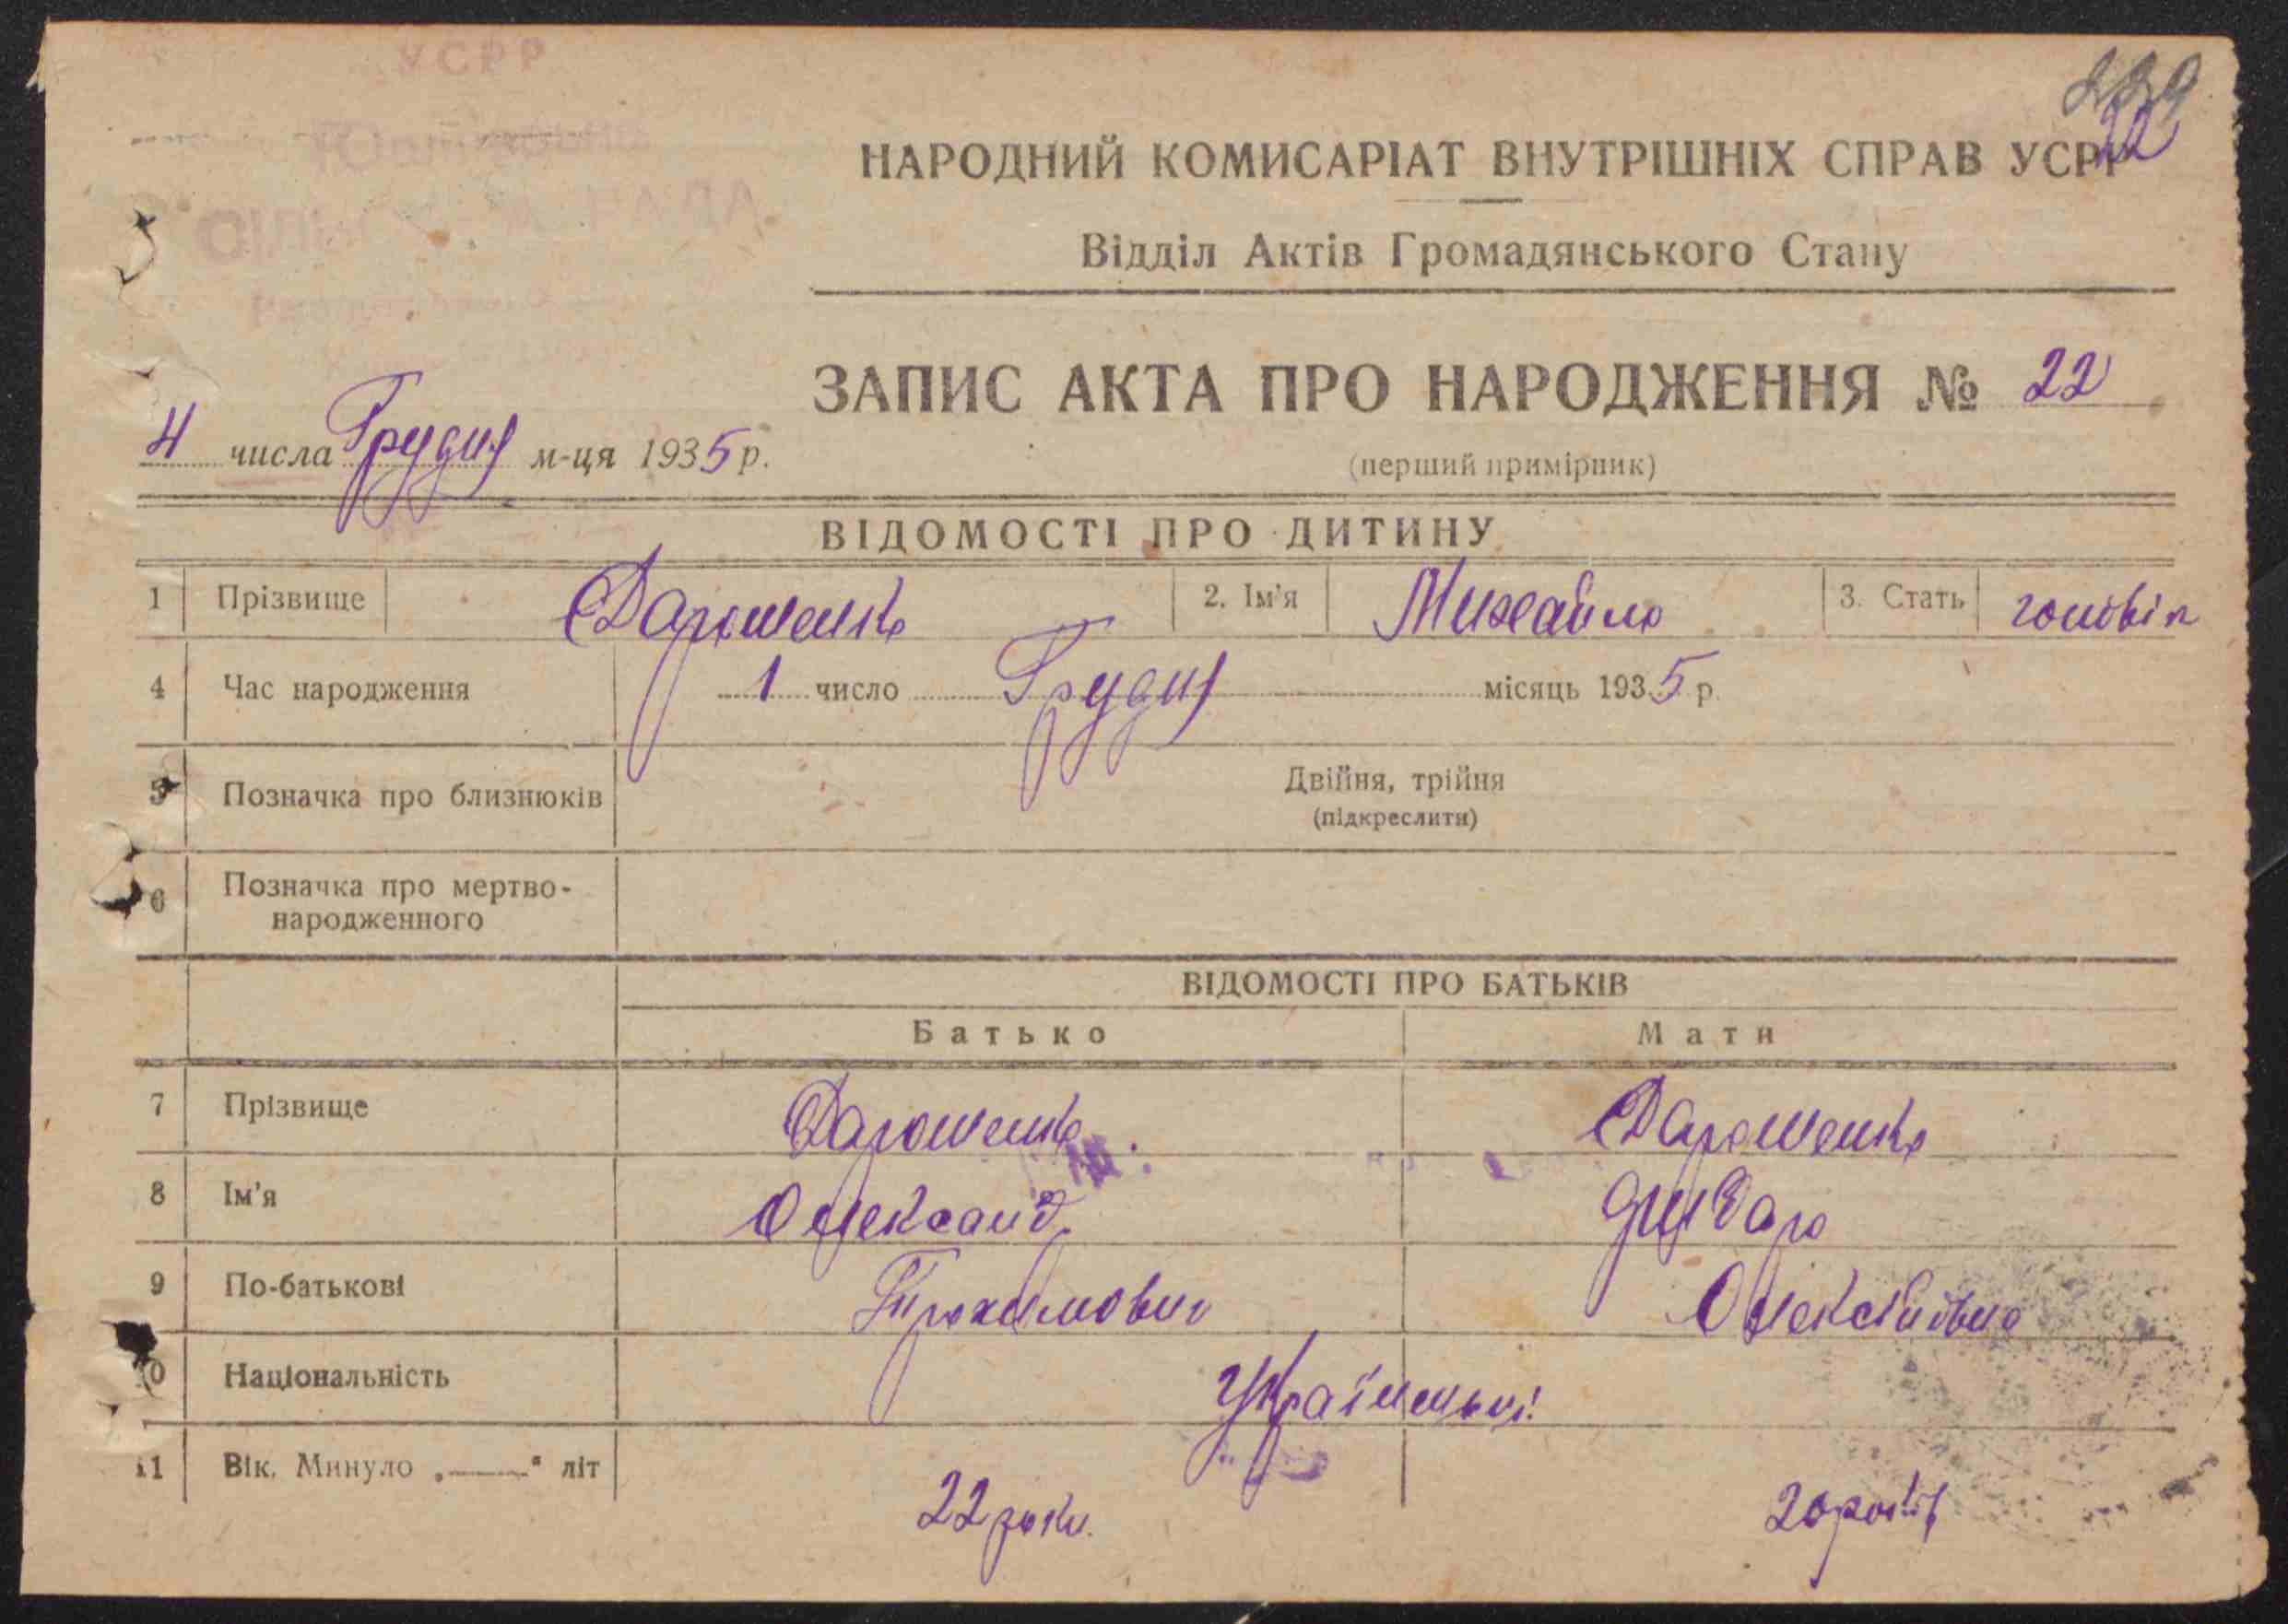 УСРР
РАДА
НАРОДНИЙ КОМИСАРІАТ ВНУТРІШНІХ СПРАВ УСРР
Відділ Актів Громадянського Стану
ЗАПИС АКТА ПРО НАРОДЖЕННЯ № 22
4 числа Грудня м-ця 1935 р.
(перший примірник)
ВІДОМОСТІ ПРО ДИТИНУ
1 Прізвище Дарошенко 2. Ім'я Михайло 3. Стать
4 Час народження 1 число Грудня місяць 1935 р.
5 Позначка про близнюків Двійня, трійня
(підкреслити)
6 Позначка про мертво-
народженного
ВІДОМОСТІ ПРО БАТЬКІВ
Батько Мати
7 Прізвище Дарошенко Дарошенко
8 Ім'я Олександ.
9 По-батькові Трохимович Олексіївна
10 Національність Українські
11 Вік. Минуло „——" літ
22 роки. 20 років